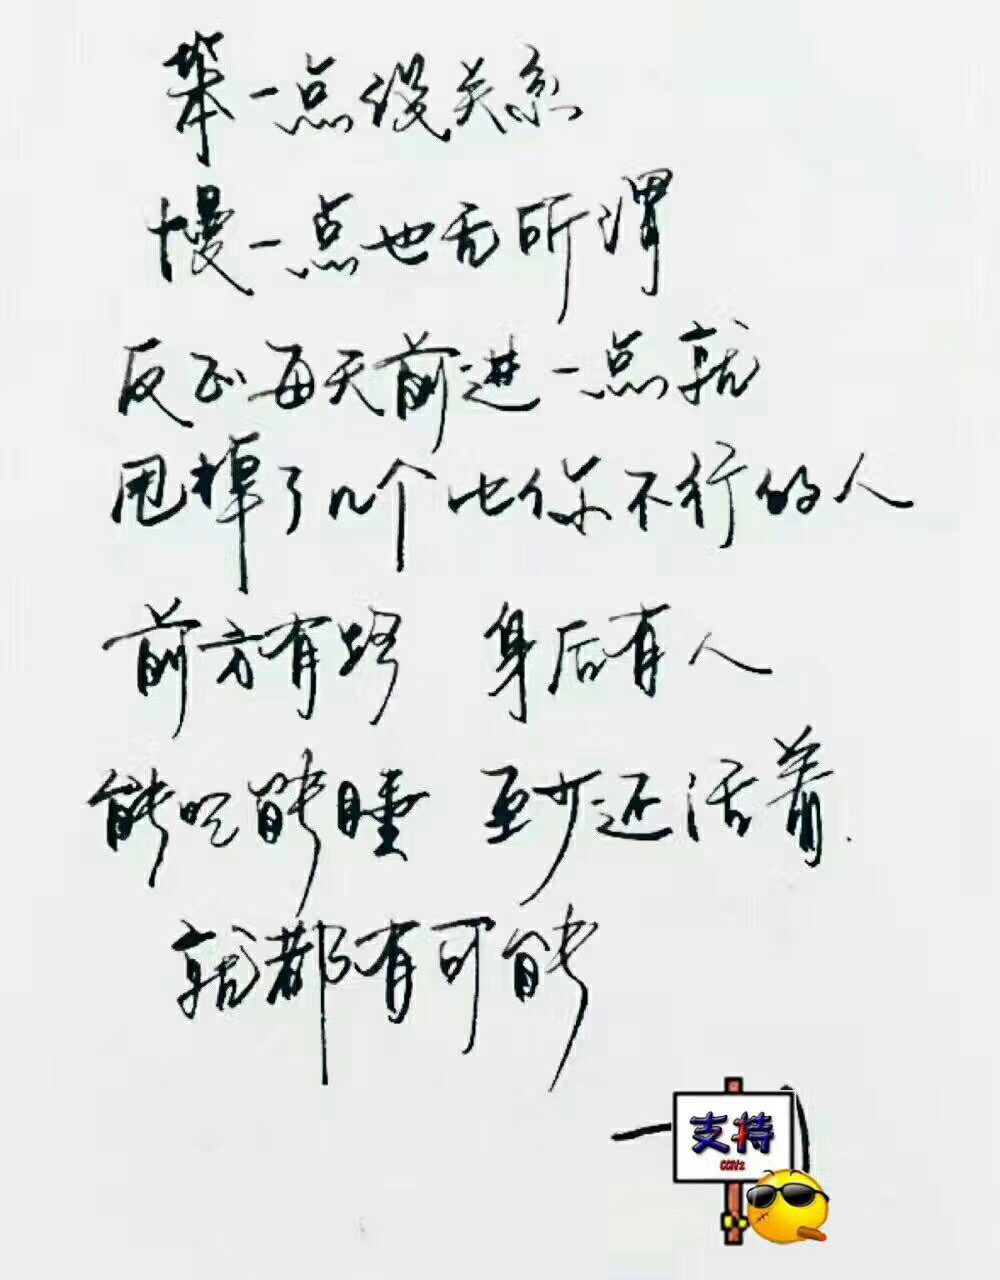 笨一点没关系
慢一点也无所谓
反正每天前进一点就
甩掉了几个比你不行的人
前方有路 身后有人
能吃能睡 至少还活着.
就都有可能
一
支持